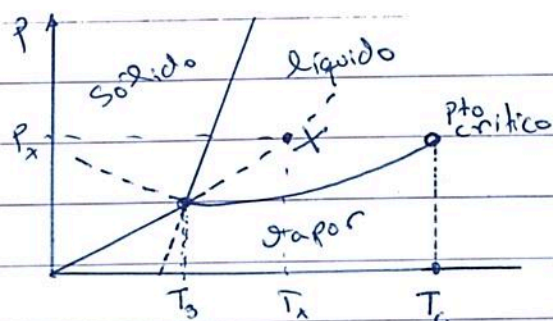 P
Sólido
líquido
Px
X
Pto
crítico
vapor
T3
Tx
Tc